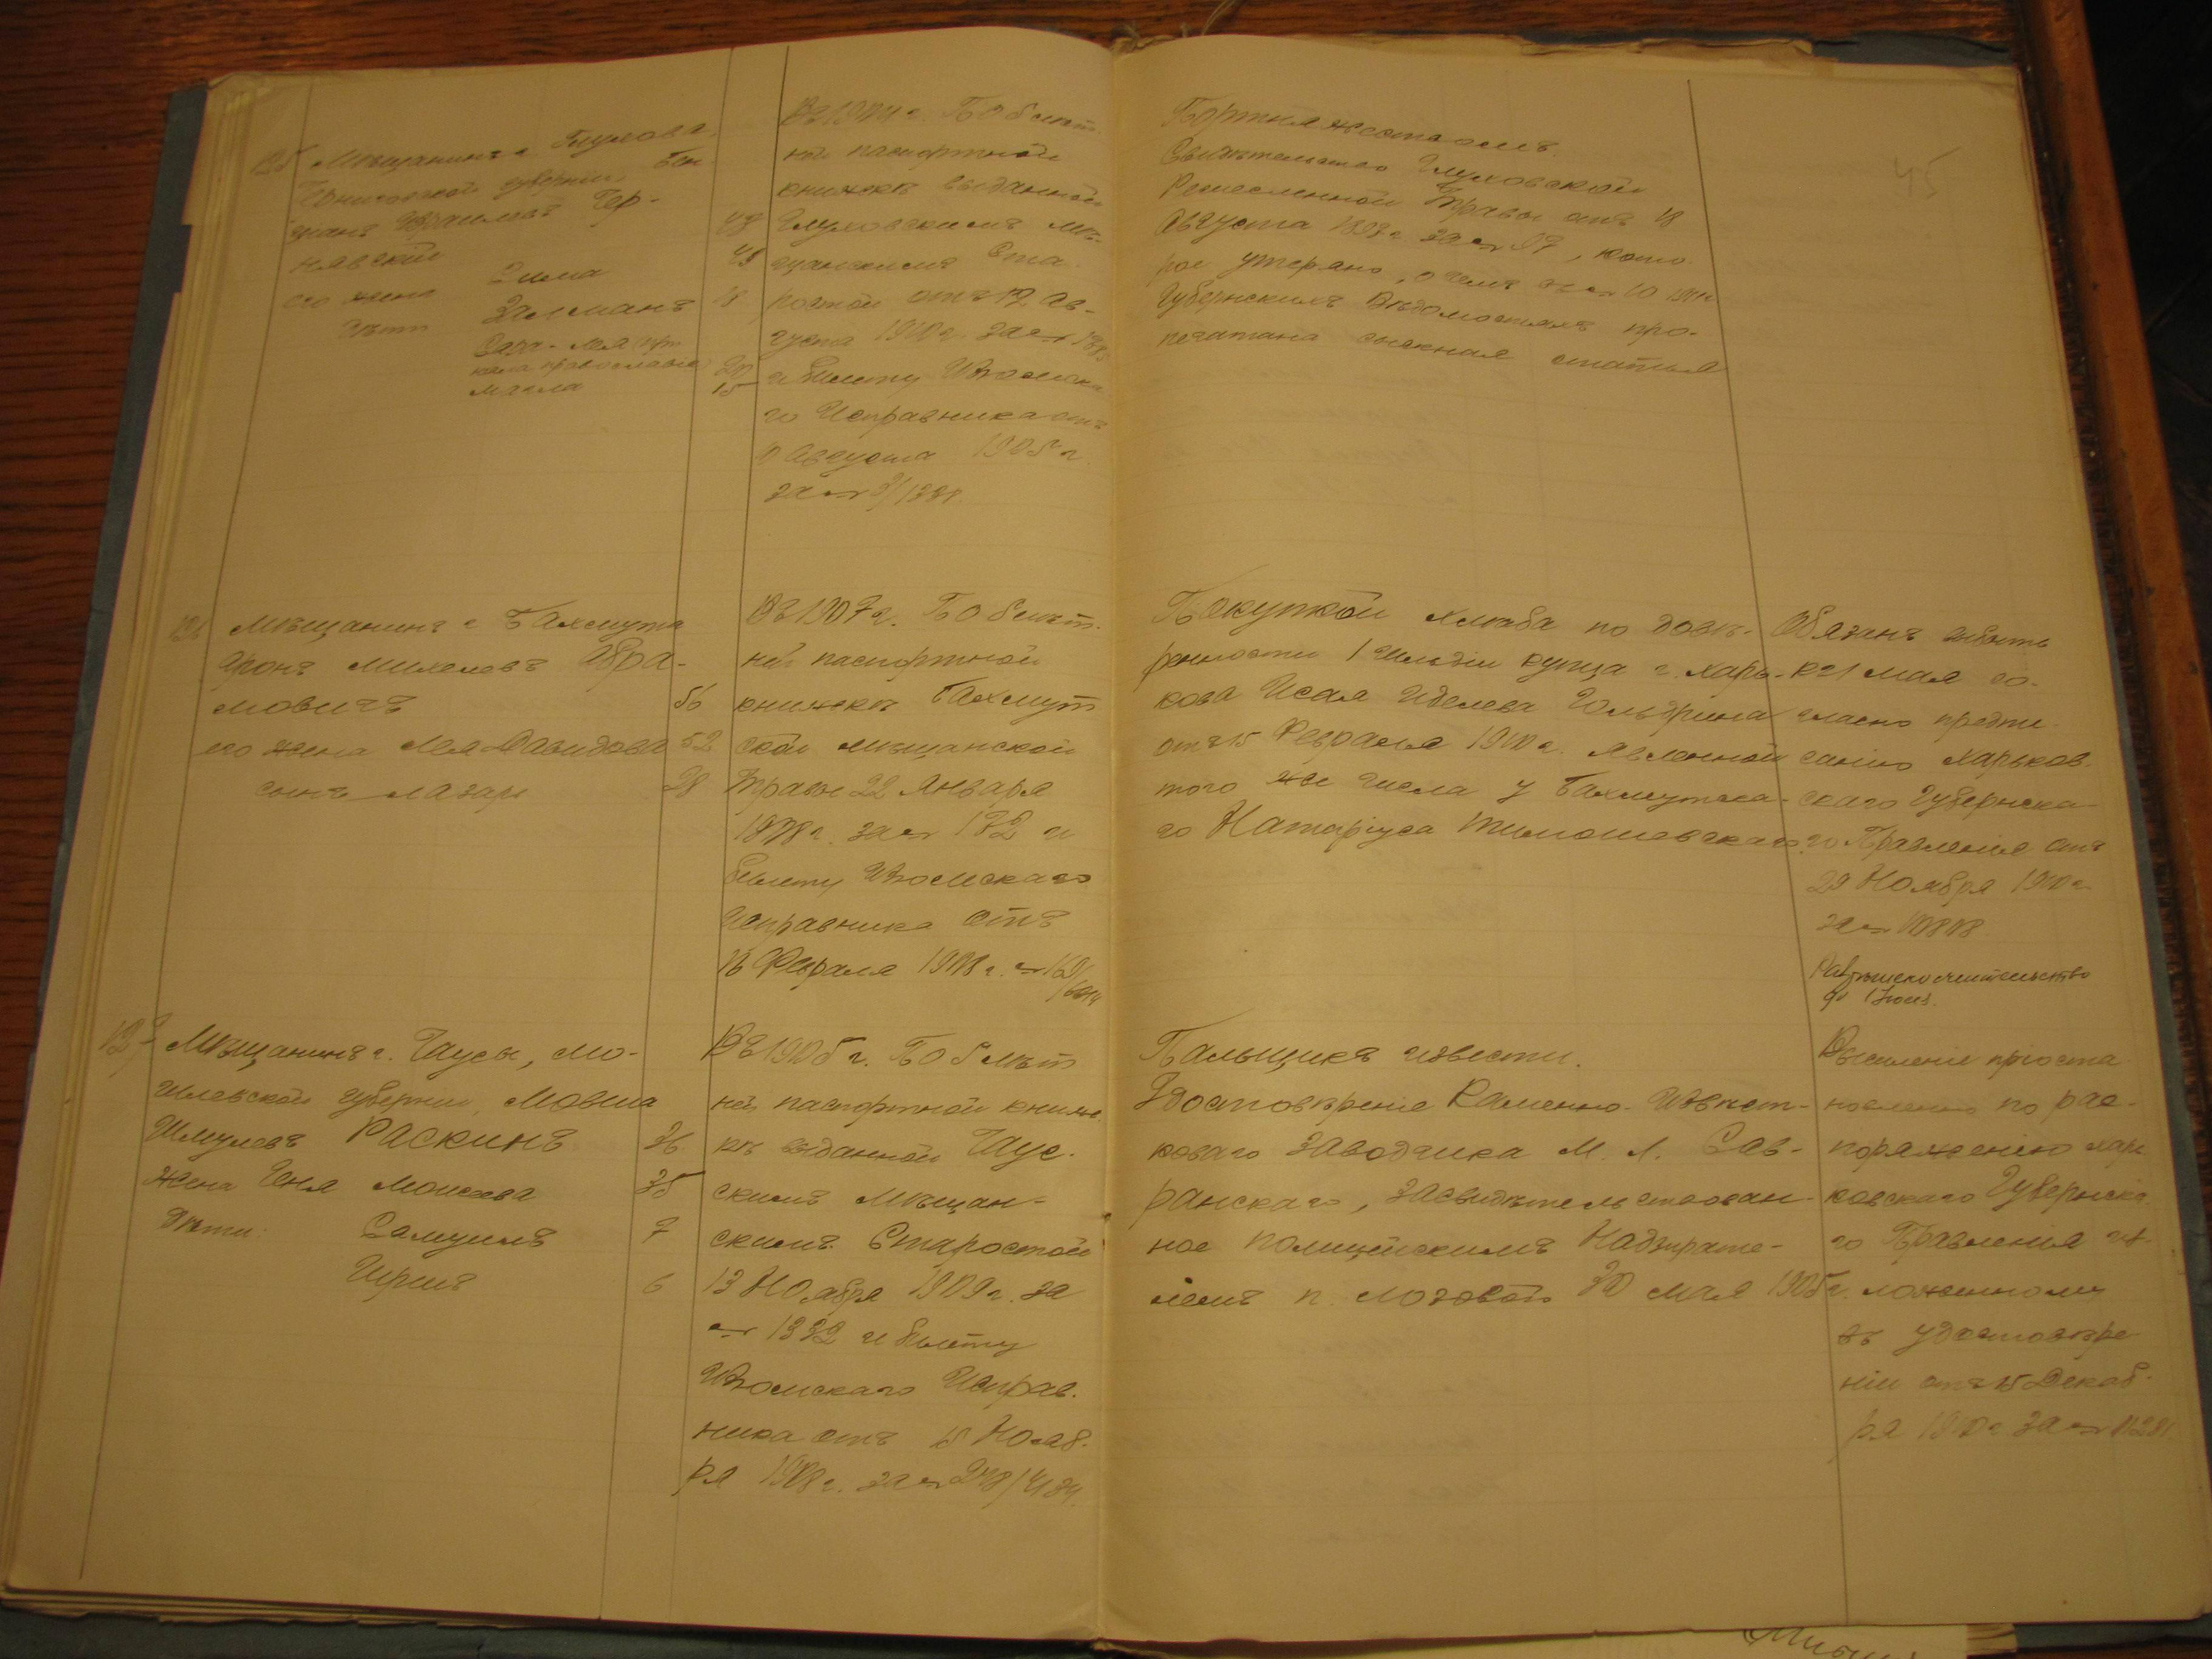 45
125 Мѣщанинъ г. Глухова,
Черниговской губерніи, Бен-
ціанъ Чер-
нявскій 48
его жена Сима 45
дѣти Залманъ 18
Сара-Лея при
няла православіе 20
Махла 15
Въ 1904 г. По 5 лѣт
ней паспортной
книжкѣ выданной
Глуховскимъ Мѣ-
щанскимъ Ста
ростой отъ 12 Ав-
густа 1910 г. за №
и билету Изюмска
го Исправника отъ
Августа 1905 г.
за №
Портняжествомъ.
Свидѣтельство Глуховской
Ремесленной Управы отъ 18
Августа за № , кото
рое утеряно, о чемъ въ № 10
Губернскихъ Вѣдомостяхъ про-
печатана сыскная статья
126 Мѣщанинъ г. Бахмута
Аронъ Михелевъ Абра-
мовичъ 56
его жена Лея Давидова 52
сынъ Лазарь 28
Въ 1907 г. По 5 лѣт.
ней паспортной
книжкѣ Бахмут
ской мѣщанской
Управы 22 Января
1908 г. за № 172 и
билету Изюмскаго
Исправника отъ
16 Февраля 1908 г. №
Покупкой хлѣба по довѣ-
ренности 1 гильдіи купца г. Харь-
кова Исая Иделева Гольдрина
отъ 15 Февраля 1910 г. явленной
того же числа у Бахмутска-
го Натаріуса Тимошевскаго.
Обязанъ выбыть
къ 1 мая со-
гласно предпи
санію Харьков.
скаго Губернска
го Правленія отъ
29 Ноября 1910 г.
за № 10808
Разрѣшено жительство
до 1 Іюня.
127 Мѣщанинъ г. Чаусы, Мо-
гилевской губерніи, Мовша
Шмулевъ Раскинъ 36
жена Геня Моисеева 35
Дѣти: Самуилъ 7
Ирма 6
Въ 1905 г. По 5 лѣт
ней паспортной книж
кѣ выданной Чаус-
скимъ Мѣщан-
скимъ Старостой
13 Ноября 1909 г. за
№ 1332 и билету
Изюмскаго Исправ.
ника отъ 15 Нояб.
ря 1908 г. за № 248/4134.
Пальщикъ извести.
Удостовѣреніе Каменно-Извест-
коваго заводчика М. Л. Сав-
ранскаго, засвидѣтельствован-
ное полицейскимъ Надзирате-
лемъ п. Лозовой 30 мая 1905 г.
Выселеніе пріоста
новлено по рас-
поряженію Харь
ковскаго Губернска
го Правленія из-
ложенному
въ удостовѣре
ніи отъ 15 Декаб-
ря 1910 г. за № 11281